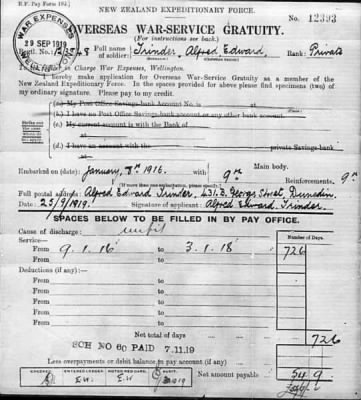 N.Z. Pay Form 192.
NEW ZEALAND EXPEDITIONARY FORCE.
No 12393
OVERSEAS WAR-SERVICE GRATUITY.
(For instructions see back.)
WAR EXPENSES
29 SEP 1919
Regtl. No. Full name of soldier: Trinder, Alfred Edward, Rank: Private
(Surname.) (Christian names.)
Charge War Expenses, Wellington.
I hereby make application for Overseas War-Service Gratuity as a member of the
New Zealand Expeditionary Force. In the spaces provided above please find specimens (two) of
my ordinary signature. Please pay to my credit.
(a) My Post Office Savings-bank Account No. is at
(b) I have no Post Office Savings-bank or any other bank account.
(c) My current account is with the Bank of
at
(d) I have an account with the private Savings-bank
at
Embarked on (date) January, 8th 1916. with 9th Main body. Reinforcements, 9th
[If more than one embarkation, please insert.]
Full postal address: Alfred Edward Trinder, 431.B. George Street, Dunedin
Date 25/9/1919. Signature of applicant: Alfred Edward Trinder.
SPACES BELOW TO BE FILLED IN BY PAY OFFICE.
Cause of discharge: unfit
Number of Days.
Service—
9.1.16 to 3.1.18 726
Deductions (if any):—
to
to
to
to
Net total of days 726
SCH No 60 PAID 7.11.19
Less overpayments or debit balance to pay account (if any)
Net amount payable 54 9
CHECKED ENTERED LEDGER NOTED REG. CARD AUDIT.
E.W. E.W